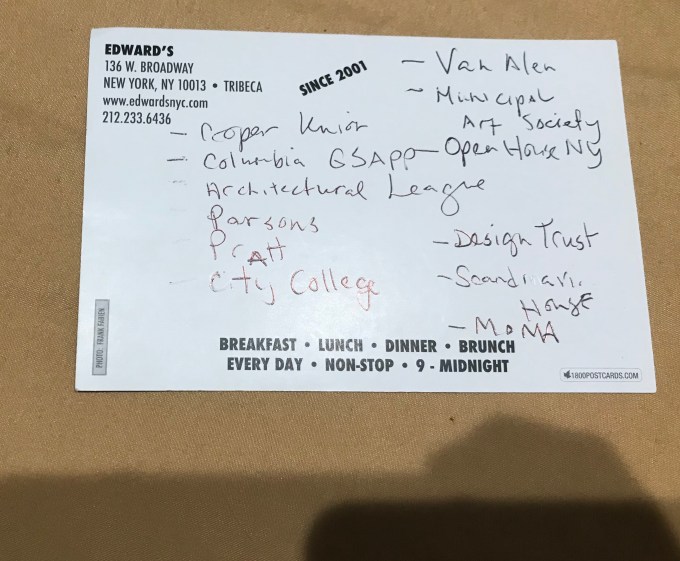 EDWARD'S
136 W. BROADWAY
NEW YORK, NY 10013 • TRIBECA
www.edwardsnyc.com
212.233.6436
SINCE 2001
- Cooper Union
- Columbia GSAPP
- Architectural League
Parsons
Pratt
- City College
- Van Alen
- Municipal
Art Society
- Open House NY
- Design Trust
- Scandinavia
House
- MoMA
PHOTO: FRANK FABIEN
BREAKFAST • LUNCH • DINNER • BRUNCH
EVERY DAY • NON-STOP • 9 - MIDNIGHT
1800POSTCARDS.COM